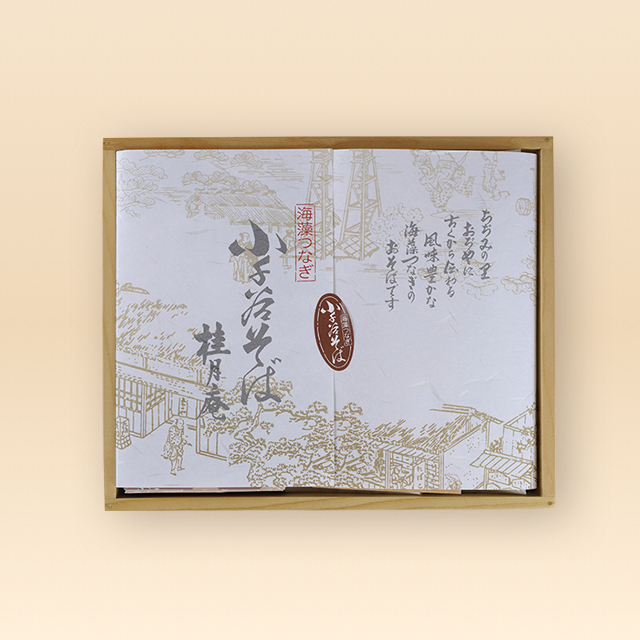 ちぢみの里
おぢやに
古くから伝わる
風味豊かな
海藻つなぎの
おそばです
海藻つなぎ
小千谷そば
海藻つなぎ
小千谷そば
桂月庵